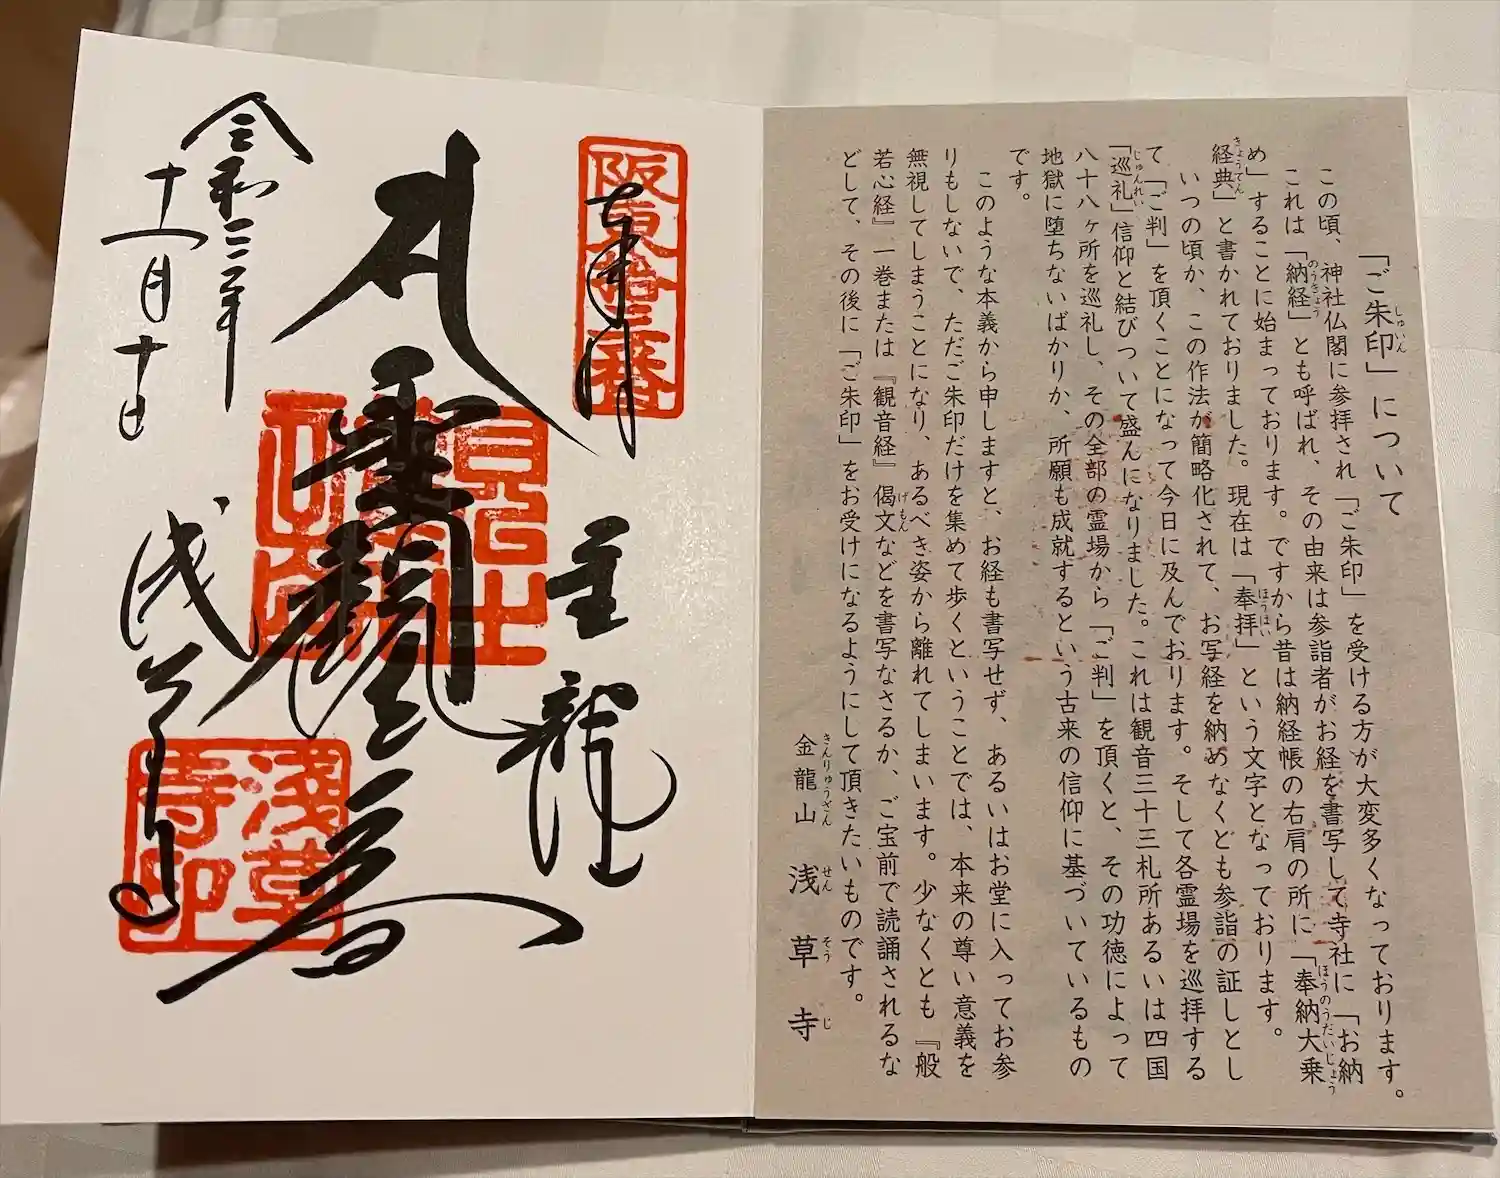 「ご朱印」について
この頃、神社仏閣に参拝され「ご朱印」を受ける方が大変多くなっております。
これは「納経」とも呼ばれ、その由来は参詣者がお経を書写して寺社に「お納
め」することに始まっております。ですから昔は納経帳の右肩の所に「奉納大乗
経典」と書かれておりました。現在は「奉拝」という文字となっております。
いつの頃か、この作法が簡略化されて、お写経を納めなくども参詣の証しとし
て「ご判」を頂くことになって今日に及んでおります。そして各霊場を巡拝する
「巡礼」信仰と結びついて盛んになりました。これは観音三十三札所あるいは四国
八十八ヶ所を巡礼し、その全部の霊場から「ご判」を頂くと、その功徳によって
地獄に堕ちないばかりか、所願も成就するという古来の信仰に基づいているもの
です。
このような本義から申しますと、お経も書写せず、あるいはお堂に入ってお参
りもしないで、ただご朱印だけを集めて歩くということでは、本来の尊い意義を
無視してしまうことになり、あるべき姿から離れてしまいます。少なくとも『般
若心経』一巻または『観音経』偈文などを書写なさるか、ご宝前で読誦されるな
どして、その後に「ご朱印」をお受けになるようにして頂きたいものです。
金龍山 浅草寺
阪東拾三番
令和三年
十一月十日
浅草寺
淺草寺印